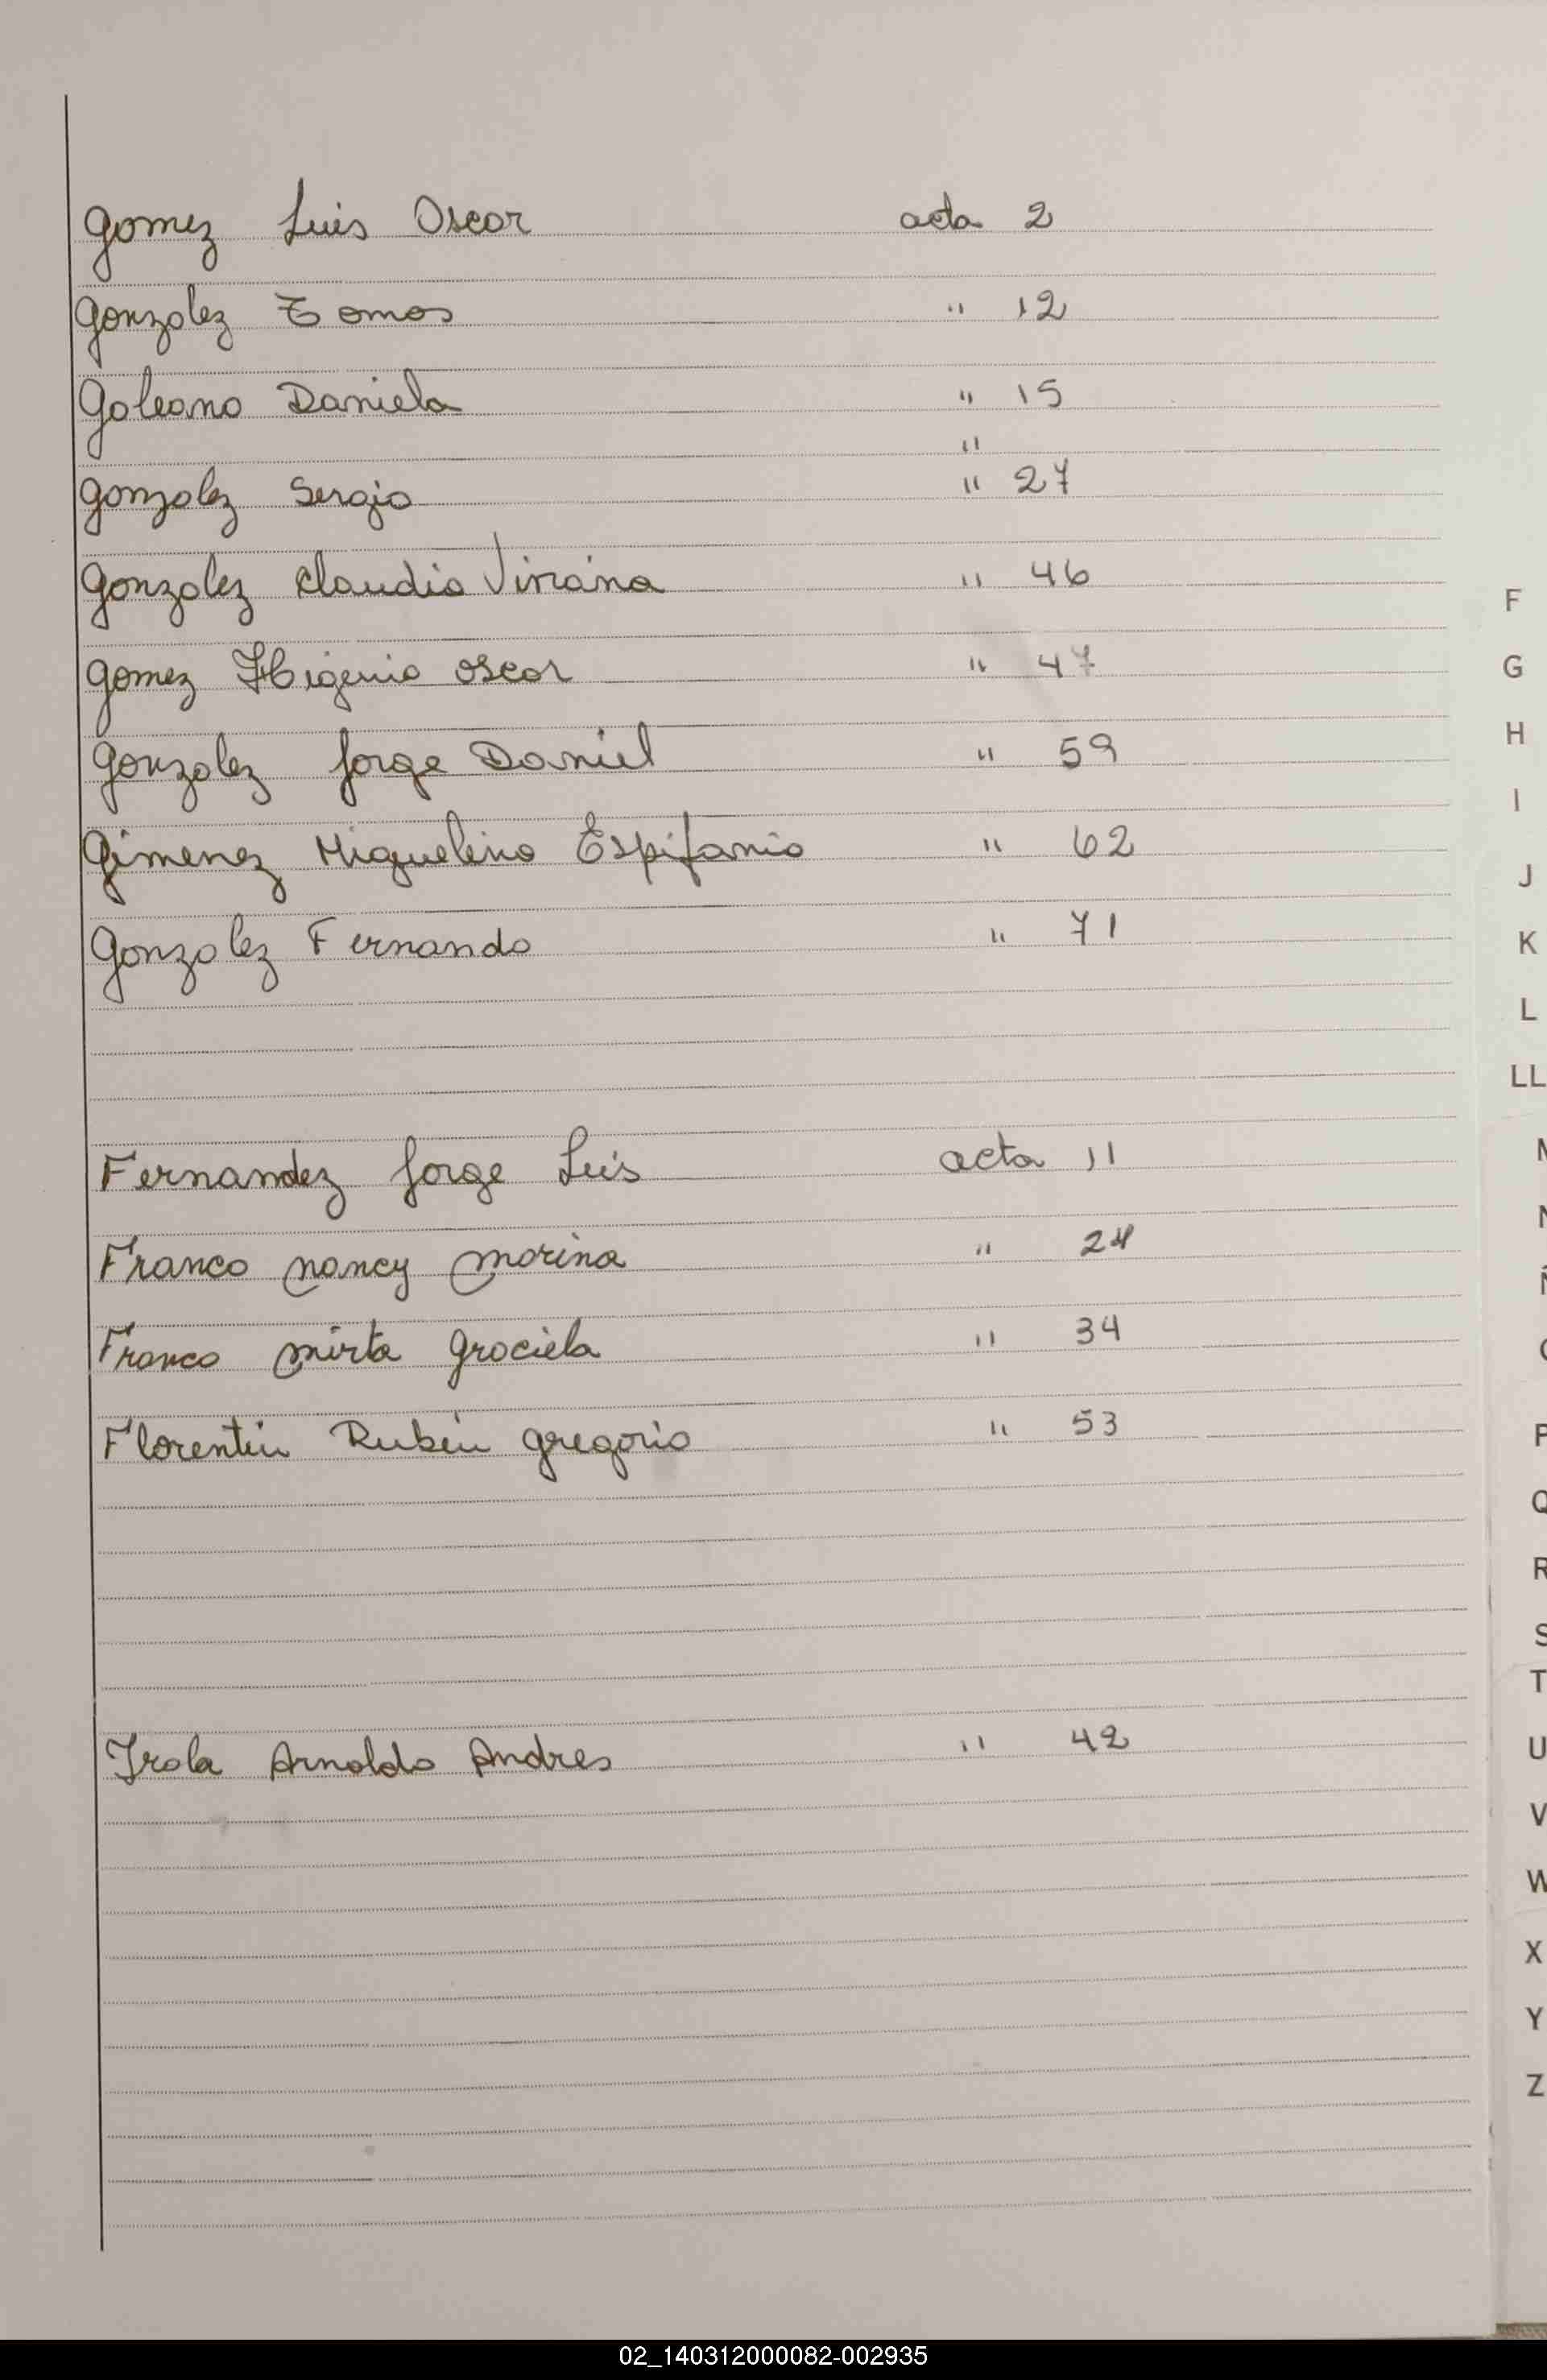 Gomez Luis Oscar acta 2
Gonzalez Tomas " 12
Galeano Daniela " 15
"
Gonzalez Sergio " 27
Gonzalez Claudia Viviana " 46
Gomez Higenio Oscar " 47
Gonzalez Jorge Daniel " 59
Gimenez Miguelino Espifanio " 62
Gonzalez Fernando " 71
Fernandez Jorge Luis acta 11
Franco Nancy Marina " 24
Franco Mirta Graciela " 34
Florentin Rubén Gregorio " 53
Irala Arnaldo Andres " 42
F
G
H
I
J
K
L
LL
P
Q
R
S
T
U
V
W
X
Y
Z
02_140312000082-002935